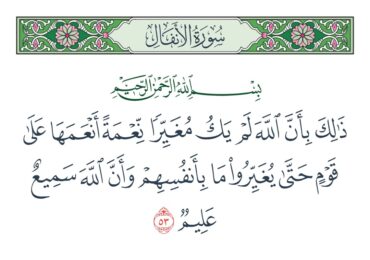 سُورَةُ الأَنفَالِ
بِسْمِ اللَّهِ الرَّحْمَٰنِ الرَّحِيمِ
ذَٰلِكَ بِأَنَّ اللَّهَ لَمْ يَكُ مُغَيِّرًا نِّعْمَةً أَنْعَمَهَا عَلَىٰ
قَوْمٍ حَتَّىٰ يُغَيِّرُوا مَا بِأَنفُسِهِمْ وَأَنَّ اللَّهَ سَمِيعٌ
عَلِيمٌ ٥٣